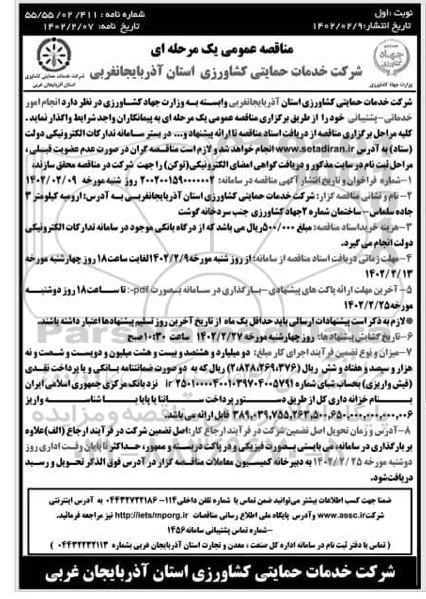 نوبت: اول
تاریخ انتشار: ۱۴۰۲/۰۲/۹
شماره نامه: ۵۵/۵۵/۰۲/۴۱۱
تاریخ نامه: ۱۴۰۲/۲/۰۷
جهاد کشاورزی
وزارت جهاد کشاورزی
مناقصه عمومی یک مرحله ای
شرکت خدمات حمایتی کشاورزی استان آذربایجانغربی
شرکت خدمات حمایتی کشاورزی استان آذربایجانغربی وابسته به وزارت جهاد کشاورزی در نظر دارد انجام امور
خدماتی-پشتیبانی خود را از طریق برگزاری مناقصه عمومی یک مرحله ای به پیمانکاران واجد شرایط واگذار نماید.
کلیه مراحل برگزاری مناقصه از دریافت اسناد مناقصه تا ارائه پیشنهاد و... در بستر سامانه تدارکات الکترونیکی دولت
(ستاد) به آدرس www.setadiran.ir انجام خواهد شد و لازم است مناقصه گران در صورت عدم عضویت قبلی،
مراحل ثبت نام در سایت مذکور و دریافت گواهی امضای الکترونیکی (توکن) را جهت شرکت در مناقصه محقق سازند.
۱-شماره فراخوان و تاریخ انتشار آگهی مناقصه در سامانه: ۲۰۰۲۰۰۱۵۹۰۰۰۰۰۲ روز شنبه مورخه ۱۴۰۲/۰۲/۰۹
۲-نام و نشانی مناقصه گزار: شرکت خدمات حمایتی کشاورزی استان آذربایجانغربی به آدرس: ارومیه کیلومتر ۳
جاده سلماس- ساختمان شماره ۲ جهاد کشاورزی جنب سردخانه گوشت
۳-هزینه خرید اسناد مناقصه: مبلغ ۵۰۰/۰۰۰ ریال می باشد که از درگاه بانکی موجود در سامانه تدارکات الکترونیکی
دولت انجام می گیرد.
۴-مهلت زمانی دریافت اسناد مناقصه از سامانه: از روز شنبه مورخه ۱۴۰۲/۲/۹ لغایت ساعت ۱۸ روز چهارشنبه مورخه
۱۴۰۲/۲/۱۳
۵-آخرین مهلت ارائه پاکت های پیشنهادی-بارگذاری در سامانه بصورت pdf-: تا ساعت ۱۸ روز دوشنبه
مورخه ۱۴۰۲/۲/۲۵
*لازم به ذکر است پیشنهادات ارسالی باید حداقل یک ماه از تاریخ آخرین روز تسلیم پیشنهادها اعتبار داشته باشند.
۶-تاریخ گشایش پیشنهاد ها: روز چهارشنبه مورخه ۱۴۰۲/۲/۲۷ ساعت ۱۰:۳۰ صبح
۷-میزان و نوع تضمین فرآیند اجرای کار مبلغ: دو میلیارد و هشتصد و بیست و هشت میلیون و دویست و شصت و نه
هزار و سیصد و هفتاد و شش ریال (۲/۸۲۸/۲۶۹/۳۷۶) ریال که به دو صورت ضمانتنامه بانکی و یا پرداخت نقدی
(فیش واریزی) بحساب شبای شماره ir نزد بانک مرکزی جمهوری اسلامی ایران
بنام خزانه داری کل از طریق دستور پرداخت ساتنا یا پایا با شناسه واریز
قابل ارائه می باشد.
۸-آدرس و زمان تحویل اصل تضمین شرکت در فرآیند ارجاع کار: اصل تضمین شرکت در فرآیند ارجاع (الف) علاوه
بر بارگذاری در سامانه، می بایستی بصورت فیزیکی و در پاکت دربسته و ممهور، حداکثر تا پایان وقت اداری روز
دوشنبه مورخه ۱۴۰۲/۲/۲۵ به دبیرخانه کمیسیون معاملات مناقصه گزار در آدرس فوق الذکر تحویل و رسید
دریافت شود.
ضمنا جهت کسب اطلاعات بیشتر می توانید ضمن تماس با شماره تلفن داخلی ۱۱۴-۰۴۴۳۲۷۲۲۱۸۶ به آدرس اینترنتی
شرکت www.assc.ir و آدرس پایگاه ملی اطلاع رسانی مناقصات http://iets/mporg.ir نیز مراجعه فرمائید.
-شماره تماس پشتیبانی سامانه ۱۴۵۶
(تماس با دفتر ثبت نام در سامانه اداره کل صنعت، معدن و تجارت استان آذربایجان غربی بشماره ۰۴۴۳۲۲۳۲۱۱۳)
شرکت خدمات حمایتی کشاورزی استان آذربایجان غربی